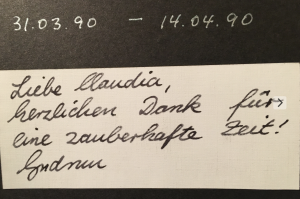 31.03.90 - 14.04.90
Liebe Claudia,
herzlichen Dank für
eine zauberhafte Zeit!
Gudrun